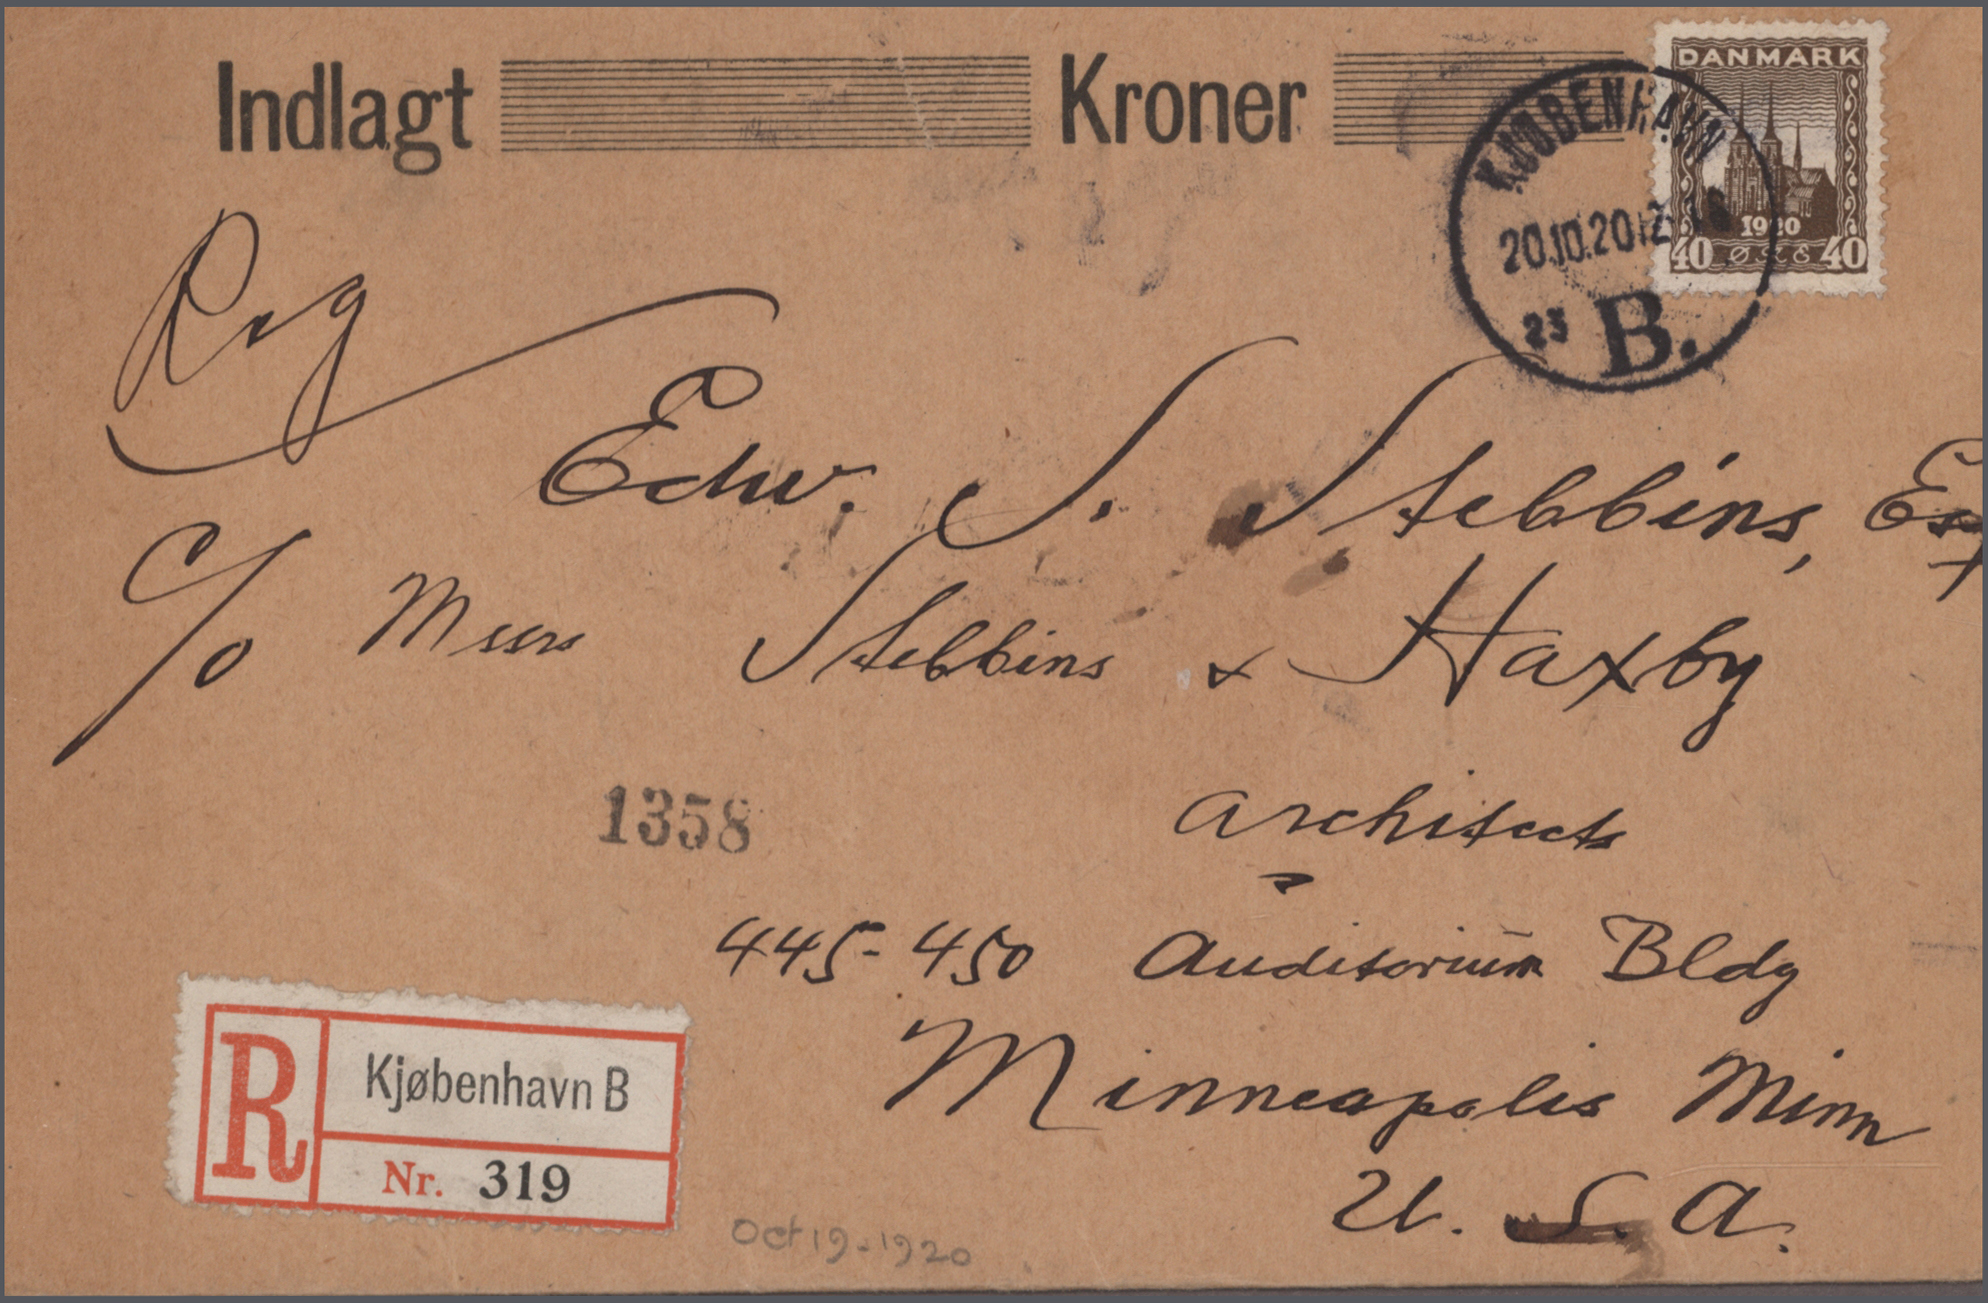 Indlagt Kroner
DANMARK
1920
40 ØRE 40
KJØBENHAVN
20.10.20 12-
23 B.
Reg
Edw. S. Stebbins, Esq
c/o Messrs Stebbins & Haxby
Architects
1358
445-450 Auditorium Bldg
Minneapolis Minn
U. S. A.
R
Kjøbenhavn B
Nr. 319
Oct 19-1920